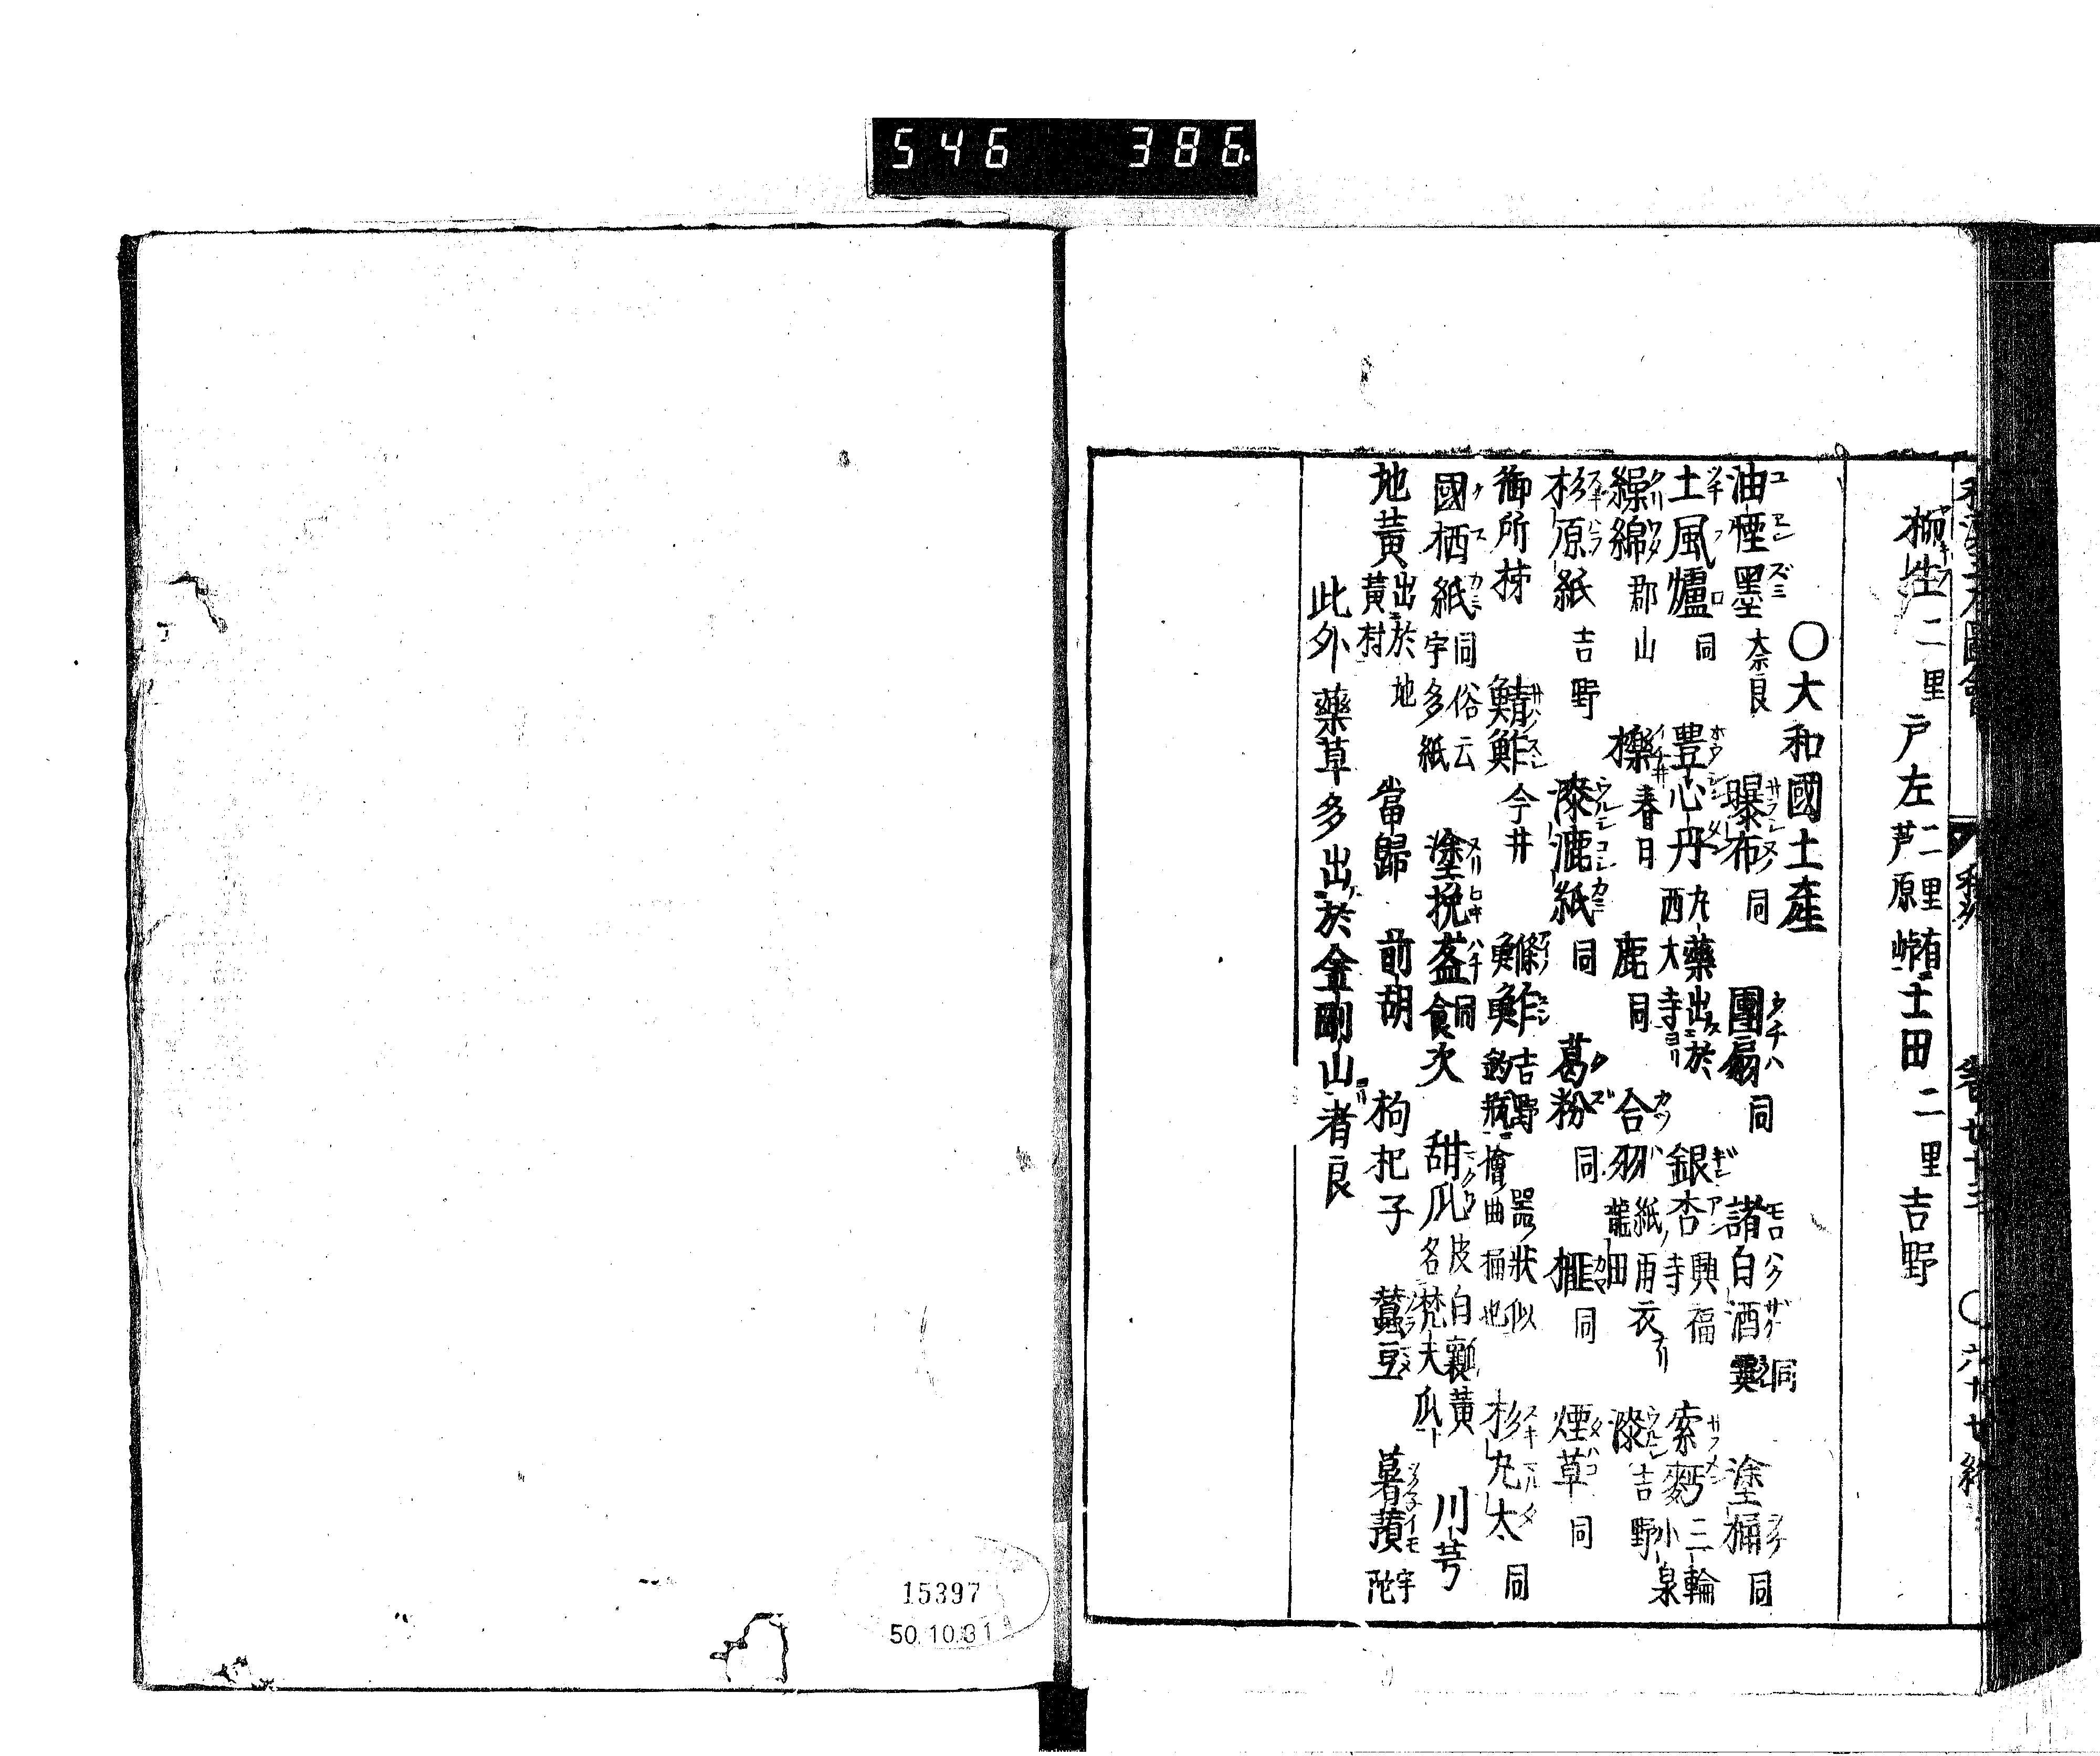 546 386
柳生二里戸左二里有芦原峠土田二里吉野
〇大和國土產
油煙墨奈良 曝布同 團扇同 諸白酒同 塗桶同
土風爐同 豊心丹丸藥出於西大寺 銀杏興福寺 索麪三輪小泉
繰綿郡山 櫟春日 鹿同 合羽紙雨衣龍田 漆吉野
杉原紙吉野 漆漉紙同 葛粉同 榧同 煙草同
御所柹 鯖鮓今井 鮓吉野 釣瓶檜器狀似曲桶也 杉丸太同
國栖紙同俗云宇多紙 塗挽盔同食次 甜瓜皮白瓤黃名梵天瓜 川芎
地黃出於地黃村 當歸 前胡 枸杞子 蠶豆 薯蕷宇陀
此外藥草多出於金剛山者良
15397
50.10.31